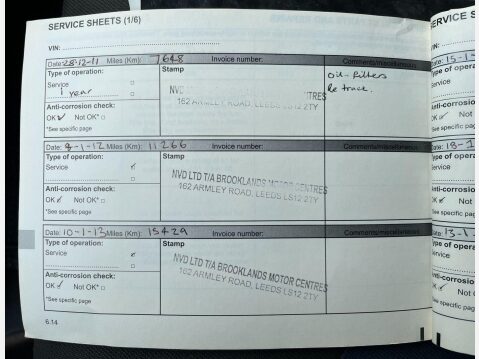 SERVICE SHEETS (1/6)
VIN:
Date: 28-12-11 Miles (Km): 7648 Invoice number: Comments/miscellaneous
Type of operation: Stamp
Service
1 year
oil-filters
NVD CENTRES
162 ARMLEY ROAD, LEEDS LS12 2TY
Anti-corrosion check:
OK ✓ Not OK* □
*See specific page
Date: 9-1-12 Miles (Km): 11266 Invoice number: Comments/miscellaneous
Type of operation: Stamp
Service ✓
NVD LTD T/A BROOKLANDS MOTOR CENTRES
162 ARMLEY ROAD, LEEDS LS12 2TY
Anti-corrosion check:
OK ✓ Not OK* □
*See specific page
Date: 10-1-13 Miles (Km): 15429 Invoice number: Comments/miscellaneous
Type of operation: Stamp
Service ✓
NVD LTD T/A BROOKLANDS MOTOR CENTRES
162 ARMLEY ROAD, LEEDS LS12 2TY
Anti-corrosion check:
OK ✓ Not OK* □
*See specific page
6.14
ERVICE S
VIN:
Date: 15-1-
Type of opera
Service
Anti-corrosio
OK ✓ Not
*See specific page
Date: 18-1
Type of opera
Service
Anti-corrosio
OK ✓ Not
*See specific page
Date: 13-1-
Type of opera
Service
Anti-corrosio
OK ✓ Not
*See specific page